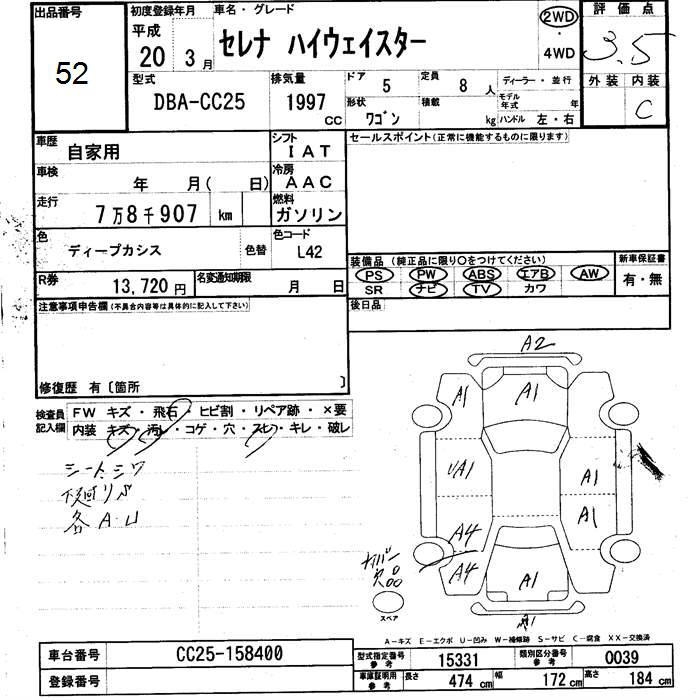 出品番号
52
初度登録年月
平成
20 3月
車名・グレード
セレナ ハイウェイスター
2WD
・
4WD
評価点
3.5
外装 内装
C
型式
DBA-CC25
排気量
1997
CC
ドア
5
定員
8人
ディーラー・並行
モデル年式 年
形状
ワゴン
積載
kg
ハンドル 左・右
車歴
自家用
シフト
IAT
車検
年 月( 日)
冷房
AAC
走行
7万8千907 km
燃料
ガソリン
色
ディープカシス
色替
色コード
L42
R券
13,720円
名変通知期限
月 日
セールスポイント(正常に機能するものに限ります)
装備品(純正品に限り〇をつけてください)
PS PW ABS エアB AW
SR ナビ TV カワ
新車保証書
有・無
後日品
注意事項申告欄(不具合内容等は具体的に記入して下さい)
修復歴 有〔箇所 〕
検査員記入欄
FW キズ・飛石・ヒビ割・リペア跡・×要
内装 キズ・汚レ・コゲ・穴・スレ・キレ・破レ
シートシワ
各A.U
A2
A1
A1
UA1
A1
A1
A4
A4
A1
欠品
スペア
A-キズ E-エクボ U-凹み W-補修跡 S-サビ C-腐食 XX-交換済
車台番号
CC25-158400
登録番号
型式指定番号
参考
15331
類別区分番号
参考
0039
車庫証明用
参考
長さ
474 cm
幅
172 cm
高さ
184 cm